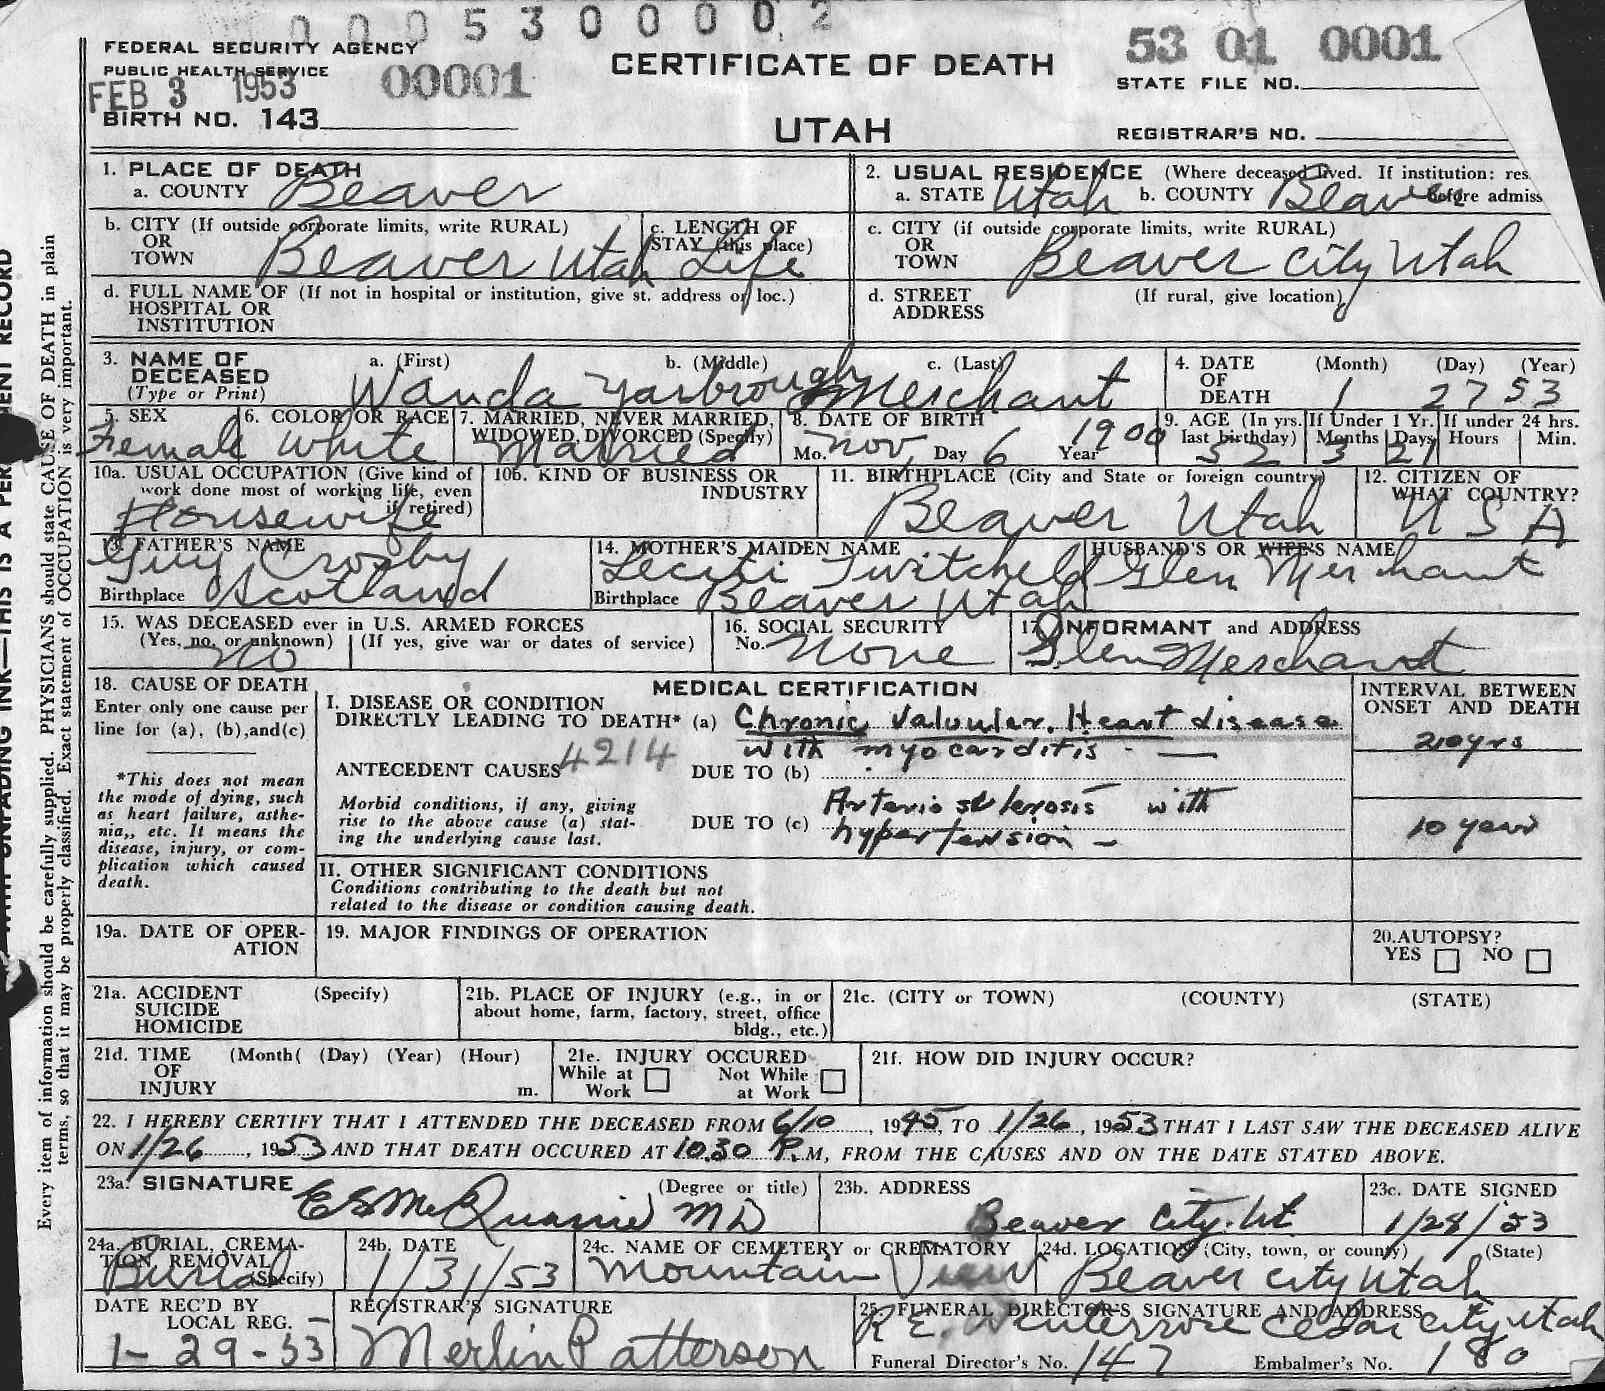 0 0 0 5 3 0 0 0 0 2
FEDERAL SECURITY AGENCY
PUBLIC HEALTH SERVICE
FEB 3 1953
00001
BIRTH NO. 143
CERTIFICATE OF DEATH
UTAH
53 01 0001
STATE FILE NO.
REGISTRAR'S NO.
1. PLACE OF DEATH
a. COUNTY Beaver
2. USUAL RESIDENCE (Where deceased lived. If institution: res.
a. STATE Utah b. COUNTY Beaver before admiss
b. CITY (If outside corporate limits, write RURAL)
OR
TOWN Beaver Utah
c. LENGTH OF
STAY (this place)
Life
c. CITY (if outside corporate limits, write RURAL)
OR
TOWN Beaver City Utah
d. FULL NAME OF (If not in hospital or institution, give st. address or loc.)
HOSPITAL OR
INSTITUTION
d. STREET (If rural, give location)
ADDRESS
3. NAME OF
DECEASED
(Type or Print)
a. (First) b. (Middle) c. (Last)
Wanda Yarbrough Merchant
4. DATE
OF
DEATH
(Month) (Day) (Year)
1 27 53
5. SEX
Female
6. COLOR OR RACE
White
7. MARRIED, NEVER MARRIED,
WIDOWED, DIVORCED (Specify)
Married
8. DATE OF BIRTH
Mo. Nov Day 6 Year 1900
9. AGE (In yrs.
last birthday)
52
If Under 1 Yr.
Months Days
3 21
If under 24 hrs.
Hours Min.
10a. USUAL OCCUPATION (Give kind of
work done most of working life, even
if retired)
Housewife
10b. KIND OF BUSINESS OR
INDUSTRY
11. BIRTHPLACE (City and State or foreign country)
Beaver Utah
12. CITIZEN OF
WHAT COUNTRY?
U S A
13. FATHER'S NAME
Guy Crosby
Birthplace Scotland
14. MOTHER'S MAIDEN NAME
Twitchell
Birthplace Beaver Utah
HUSBAND'S OR WIFE'S NAME
Glen Merchant
15. WAS DECEASED ever in U.S. ARMED FORCES
(Yes, no, or unknown) (If yes, give war or dates of service)
No
16. SOCIAL SECURITY
No. None
17. INFORMANT and ADDRESS
Glen Merchant
18. CAUSE OF DEATH
Enter only one cause per
line for (a), (b),and(c)
*This does not mean
the mode of dying, such
as heart failure, asthe-
nia,, etc. It means the
disease, injury, or com-
plication which caused
death.
MEDICAL CERTIFICATION
I. DISEASE OR CONDITION
DIRECTLY LEADING TO DEATH* (a) Chronic Valvular Heart disease
with myocarditis -
4214
ANTECEDENT CAUSES
DUE TO (b)
Morbid conditions, if any, giving
rise to the above cause (a) stat-
ing the underlying cause last.
DUE TO (c) Arterio sclerosis with
hypertension -
INTERVAL BETWEEN
ONSET AND DEATH
10 years
II. OTHER SIGNIFICANT CONDITIONS
Conditions contributing to the death but not
related to the disease or condition causing death.
19a. DATE OF OPER-
ATION
19. MAJOR FINDINGS OF OPERATION
20.AUTOPSY?
YES NO
21a. ACCIDENT (Specify)
SUICIDE
HOMICIDE
21b. PLACE OF INJURY (e.g., in or
about home, farm, factory, street, office
bldg., etc.)
21c. (CITY or TOWN) (COUNTY) (STATE)
21d. TIME (Month( (Day) (Year) (Hour)
OF
INJURY m.
21e. INJURY OCCURED
While at Not While
Work at Work
21f. HOW DID INJURY OCCUR?
22. I HEREBY CERTIFY THAT I ATTENDED THE DECEASED FROM 6/10, 1945, TO 1/26, 1953 THAT I LAST SAW THE DECEASED ALIVE
ON 1/26, 1953 AND THAT DEATH OCCURED AT 10.30 P.M, FROM THE CAUSES AND ON THE DATE STATED ABOVE.
23a. SIGNATURE (Degree or title)
E S McQuarrie MD
23b. ADDRESS
Beaver City. Ut
23c. DATE SIGNED
1/28/53
24a. BURIAL, CREMA-
TION, REMOVAL
(Specify)
Burial
24b. DATE
1/31/53
24c. NAME OF CEMETERY or CREMATORY
Mountain View
24d. LOCATION (City, town, or county) (State)
Beaver City Utah
DATE REC'D BY
LOCAL REG.
1-29-53
REGISTRAR'S SIGNATURE
Merlin Patterson
25. FUNERAL DIRECTOR'S SIGNATURE AND ADDRESS
R E. Winterrose Cedar City Utah
Funeral Director's No. 147 Embalmer's No. 180
Every item of information should be carefully supplied. PHYSICIANS should state CAUSE OF DEATH in plain
terms, so that it may be properly classified. Exact statement of OCCUPATION is very important.
UNFADING INK—THIS IS A PER ENT RECORD